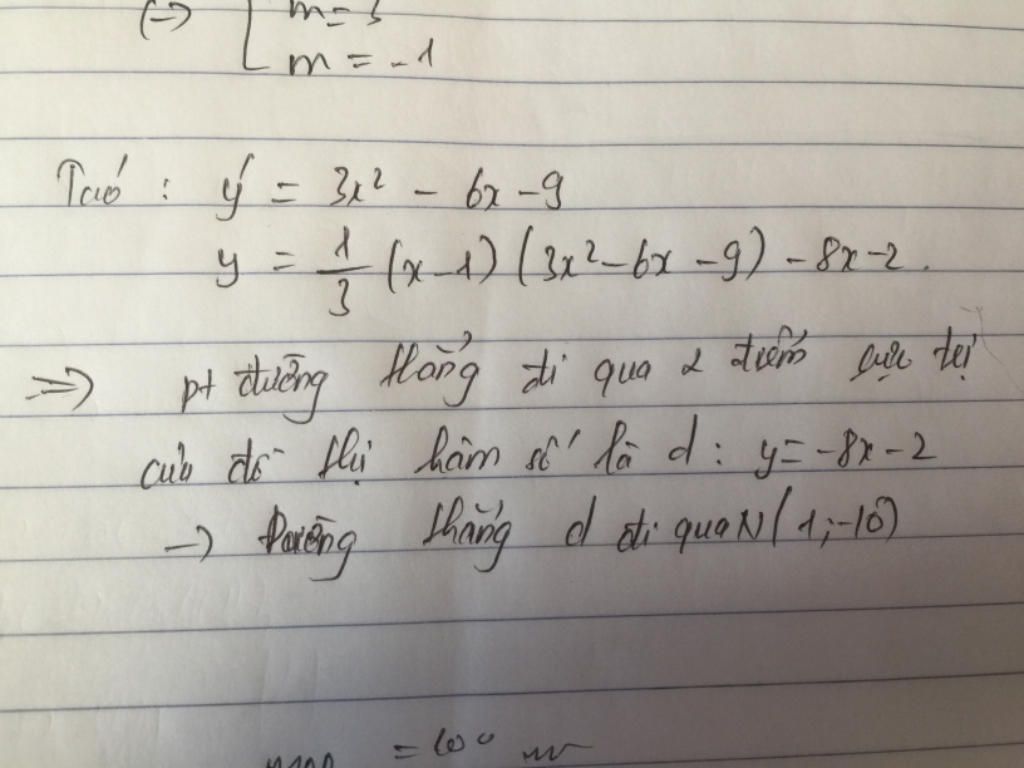 (->) [ m = 3
m = -1
Tacó : y' = 3x² - 6x - 9
y = 1/3 (x-1) (3x² - 6x - 9) - 8x - 2.
=> pt đường thẳng đi qua 2 điểm cực trị
của đồ thị hàm số là d : y = -8x - 2
-> Đường thẳng d đi qua N(1;-10)
= 100